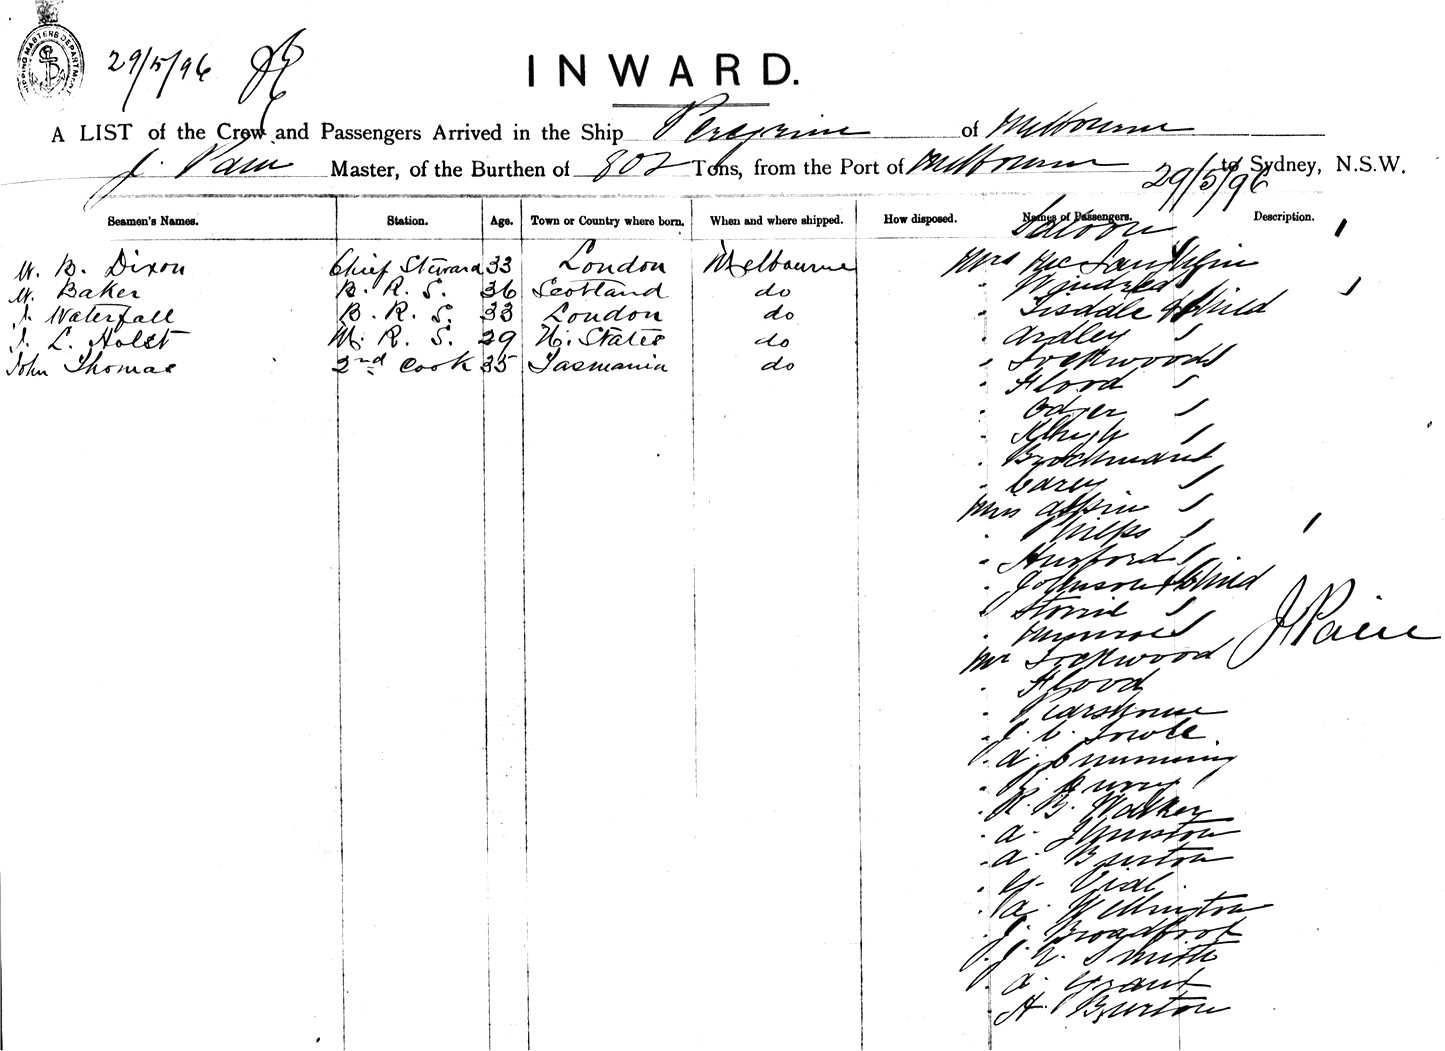 SHIPPING MASTERS DEPARTMENT
29/5/96
INWARD.
A LIST of the Crew and Passengers Arrived in the Ship Peregrine of Melbourne
J. Pain Master, of the Burthen of 802 Tons, from the Port of Melbourne to Sydney, N.S.W.
29/5/96
Seamen's Names. Station. Age. Town or Country where born. When and where shipped. How disposed. Names of Passengers. Description.
Saloon
W. B. Dixon Chief Steward 33 London Melbourne
W. Baker B. R. S. 36 Scotland do
J. Waterfall B. R. S. 33 London do
J. L. Holst M. R. S. 29 U. States do
John Thomas 2nd Cook 35 Tasmania do
Mrs McLaughlin
" Windred
" Tisdale & Child
" Ardley
" Lockwood
" Flood
" Odger
"
" Brockmann
" Carey
Miss
" Philps
" Hurford
" Johnson & Child
"
" Munroe
Mr Lockwood
" Flood
" Pearshouse
" J. C. Lowle
" A. Cumming
" Curry
" R. B. Walker
" A. Johnston
" A. Burton
" G. Vidl
" A. Wellington
" J. Broadfoot
" J. N. Smith
" A. Grant
" H. Burton
J Paine